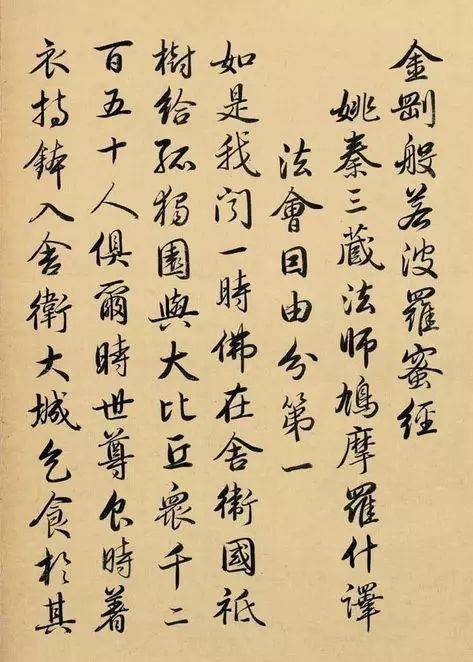 金剛般若波羅蜜經
姚秦三藏法師鳩摩羅什譯
法會因由分第一
如是我聞一時佛在舍衛國祇
樹給孤獨園與大比丘眾千二
百五十人俱爾時世尊食時著
衣持鉢入舍衛大城乞食於其